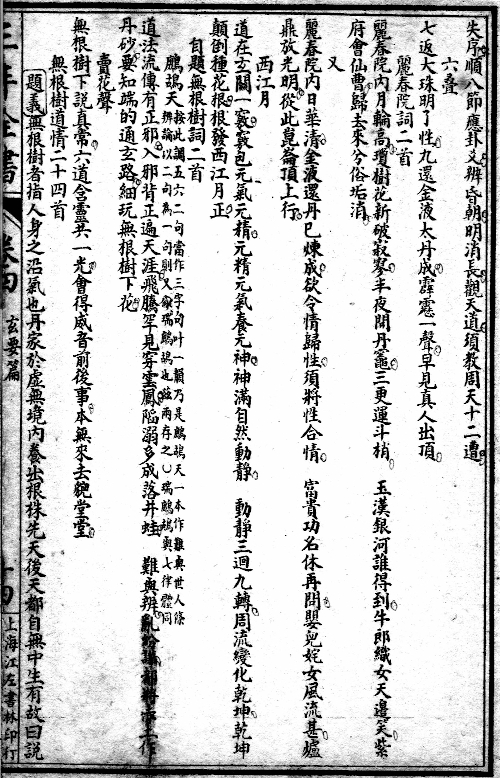 失序順八節應卦爻辨昏朝明消長觀天道須教周天十二遭
六叠
七返大珠明了性九還金液太丹成霹靂一聲早見真人出頂
麗春院詞二首
麗春院內月輪高瓊樹花新破寂寥半夜開丹竈三更運斗梢　玉漢銀河誰得到牛郎織女天邊笑紫
府會仙曹歸去來兮俗垢消
又
麗春院內日華清金液還丹已煉成欲令情歸性須將性合情　富貴功名休再問嬰兒姹女風流甚爐
鼎放光明從此崑崙頂上行
西江月
道在玄關一竅竅包元氣元精元精元氣養元神神滿自然動靜　動靜三迴九轉周流變化乾坤乾坤
顛倒種花根根發西江月正
自題無根樹詞二首
鷓鴣天 按此調五六二句當作三字句叶一韻乃是鷓鴣天一本作難與世人條
辨論以二句為一句則又似瑞鷓鴣也茲兩存之瑞鷓鴣與七律體同
道法流傳有正邪入邪背正遍天涯飛騰罕見穿雲鳳陷溺多成落井蛙　難與辨亂
丹砂要知端的通玄路細玩無根樹下花
賣花聲
無根樹下說真常六道含靈共一光會得威音前後事本無來去貌堂堂
無根樹道情二十四首
題義無根樹者指人身之沿氣也丹家於虛無境內養出根株先天後天都自無中生有故曰說
三丰全書 卷四 玄要篇 十四 上海江左書林印行